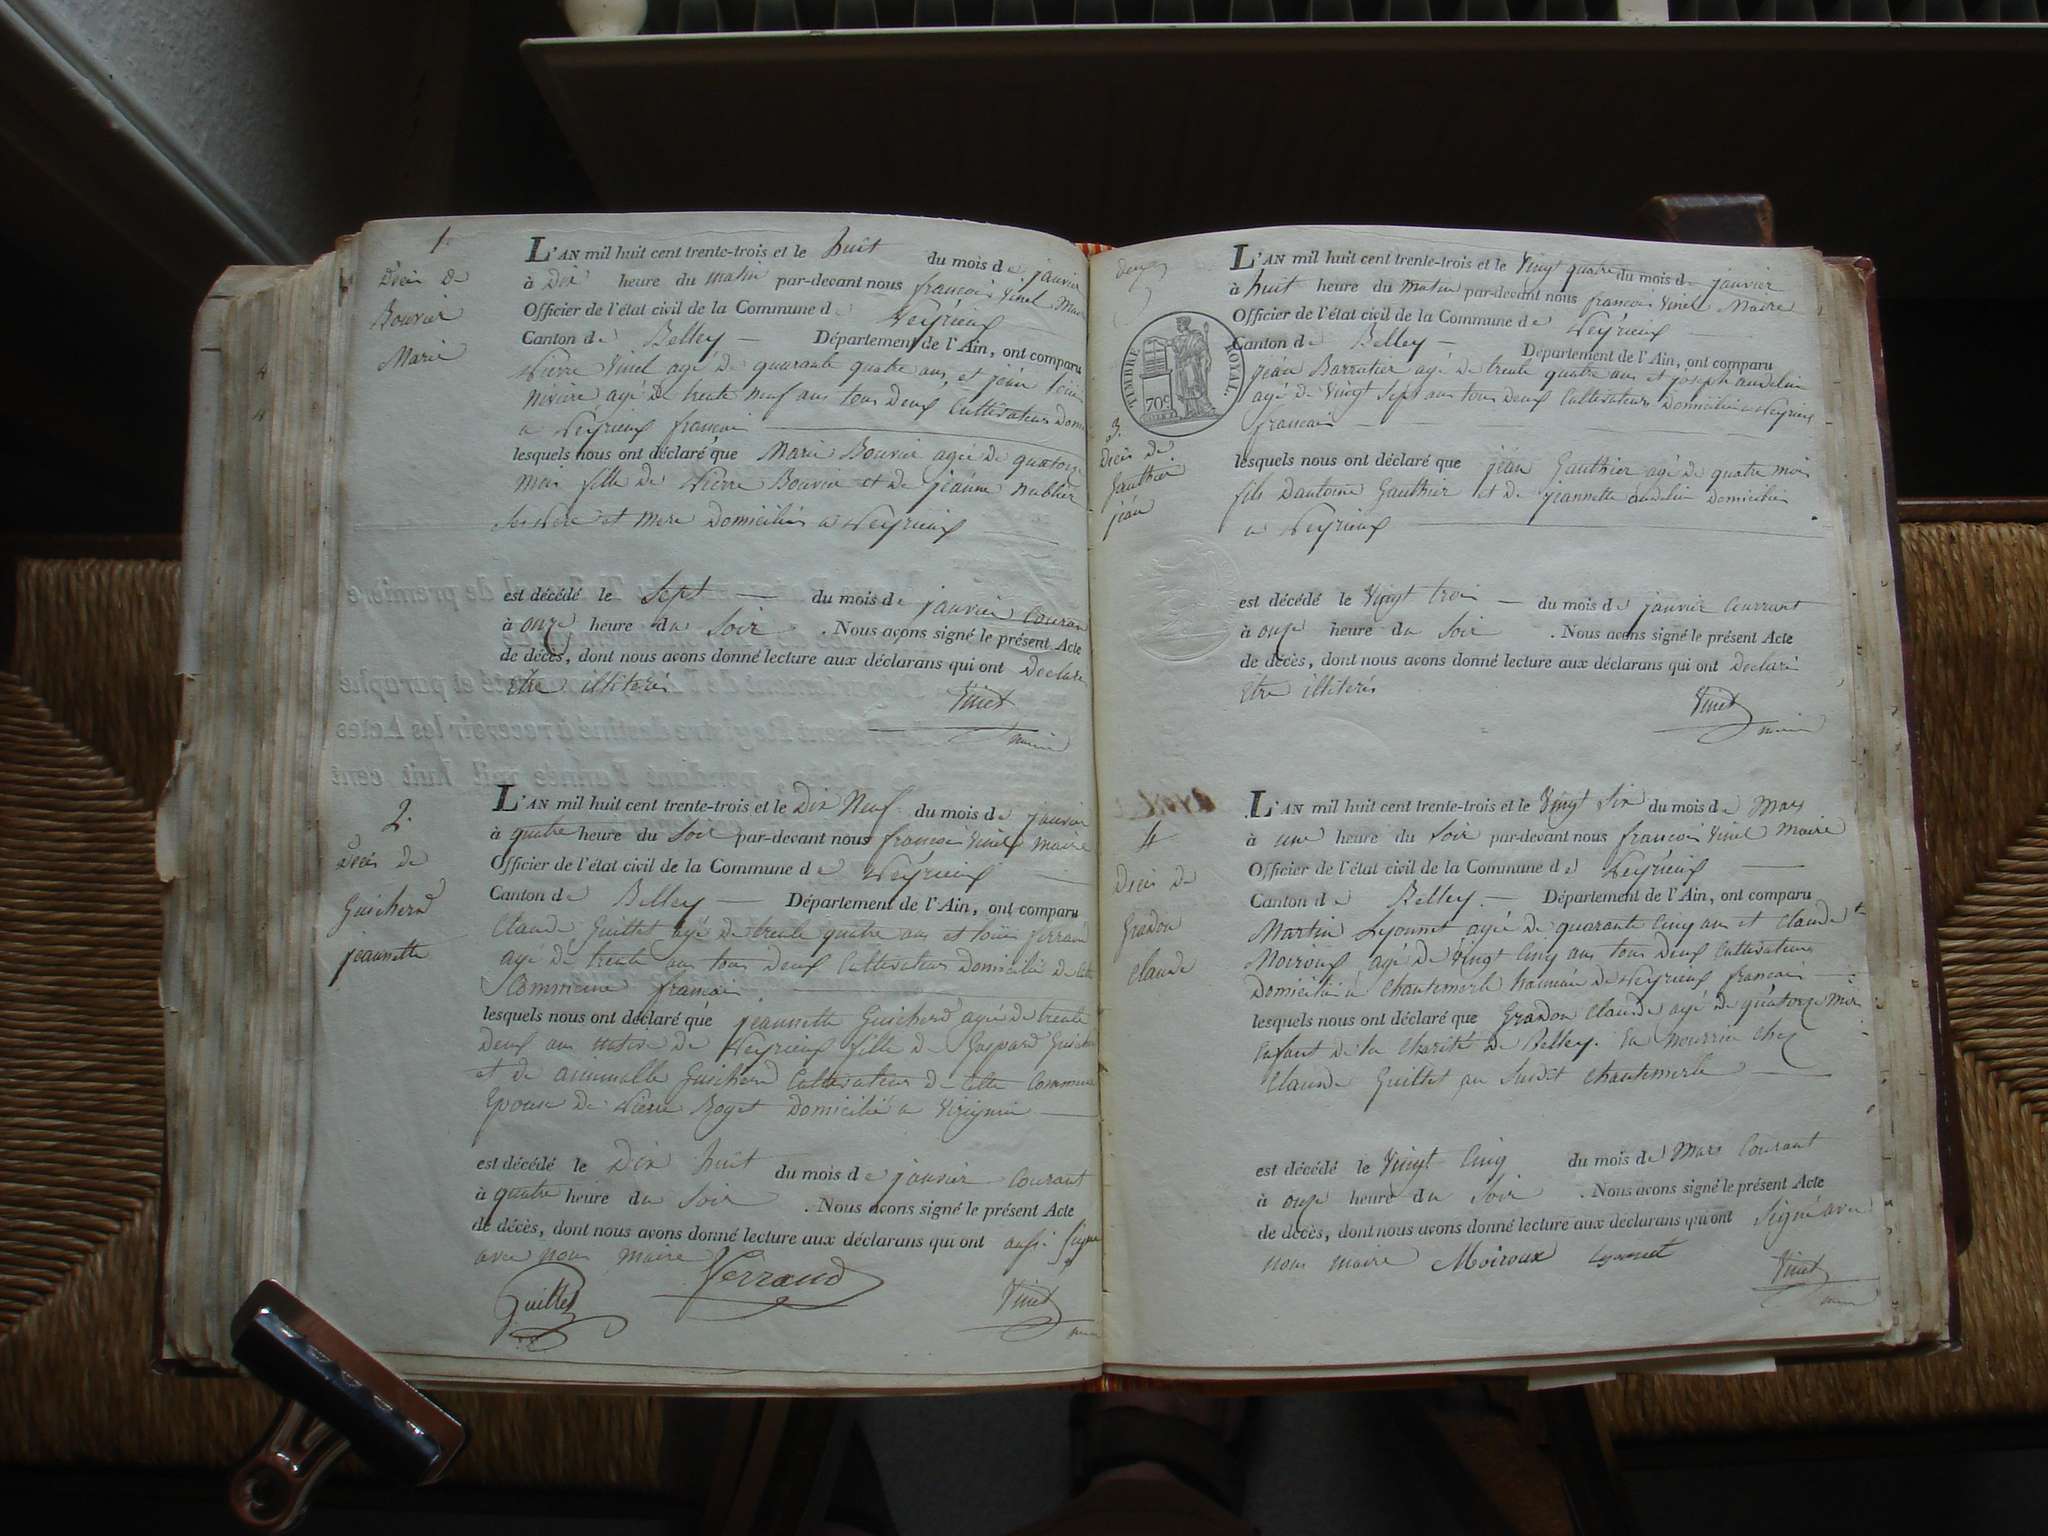 1.
Décès de
Bouvier
Marie
L'AN mil huit cent trente-trois et le huit du mois de janvier
à dix heure du matin par-devant nous francois Vinet Maire
Officier de l'état civil de la Commune de Peÿrieux
Canton de Belley Département de l'Ain, ont comparu
Pierre Vinet agé de quarante quatre ans et jéan
agé de trente neuf ans tous deux Cultivateurs
a Peÿrieux francais
lesquels nous ont déclaré que Marie Bouvier agée de quatorze
mois fille de Pierre Bouvier et de jéanne
ses Pere et mere domiciliés a Peyrieux
est décédé le Sept du mois de janvier Couran
à onze heure du Soir . Nous avons signé le présent Acte
de décès, dont nous avons donné lecture aux déclarans qui ont declaré
etre illiterés
Vinet
maire
2.
Décès de
Guicherd
jeannette
L'AN mil huit cent trente-trois et le Dix Neuf du mois de janvier
à quatre heure du Soir par-devant nous francois Vinet maire
Officier de l'état civil de la Commune de Peÿrieux
Canton de Belley Département de l'Ain, ont comparu
Claude Guillet agé de trente quatre ans et louis ferrand
agé de trente ans tous deux Cultivateurs Domicilié de
Commune francais
lesquels nous ont déclaré que jeannette Guicherd agée de trente
deux ans native de Peÿrieux fille de Gaspard
et de Guicherd Cultivateurs de Cette Commune
Epouse de Pierre Roget domicilié a Virignin
est décédé le Dix huit du mois de janvier Courant
à quatre heure du Soir . Nous avons signé le présent Acte
de décès, dont nous avons donné lecture aux déclarans qui ont aussi signé
avec nous maire
Guillet Ferrand Vinet
L'AN mil huit cent trente-trois et le Vingt quatre du mois de janvier
à huit heure du matin par-devant nous francois Vinet Maire
Officier de l'état civil de la Commune de Peÿrieux
Canton de Belley Département de l'Ain, ont comparu
TIMBRE ROYAL.
70c
jéan Barratier agé de trente quatre ans et joseph andelin
agé de Vingt Sept ans tous deux Cultivateurs Domiciliés a Peyrieux
francais
3.
Décès de
Gauthier
jéan
lesquels nous ont déclaré que jéan Gauthier agé de quatre mois
fils dantoine Gauthier et de jeannette andelin domiciliés
a Peyrieux
est décédé le Vingt trois du mois de janvier Courrant
à onze heure du Soir . Nous avons signé le présent Acte
de décès, dont nous avons donné lecture aux déclarans qui ont declaré
etre illiterés
Vinet
maire
4
Décès de
Gradon
Claude
L'AN mil huit cent trente-trois et le Vingt Six du mois de Mars
à une heure du Soir par-devant nous francois Vinet Maire
Officier de l'état civil de la Commune de Peÿrieux
Canton de Belley Département de l'Ain, ont comparu
Martin Lyonnet agé de quarante Cinq ans et Claude
Moiroux agé de Vingt Cinq ans tous deux Cultivateurs
Domicilié a Chantemerle hameau de Peyrieux francais
lesquels nous ont déclaré que Gradon Claude agé de quatorze mois
Enfant de la Charité de Belley. En nourrice chez
Claude Guillet au Susdit Chantemerle
est décédé le Vingt Cinq du mois de Mars Courant
à onze heure du Soir . Nous avons signé le présent Acte
de décès, dont nous avons donné lecture aux déclarans qui ont Signé avec
nous maire Moiroux Lyonnet Vinet